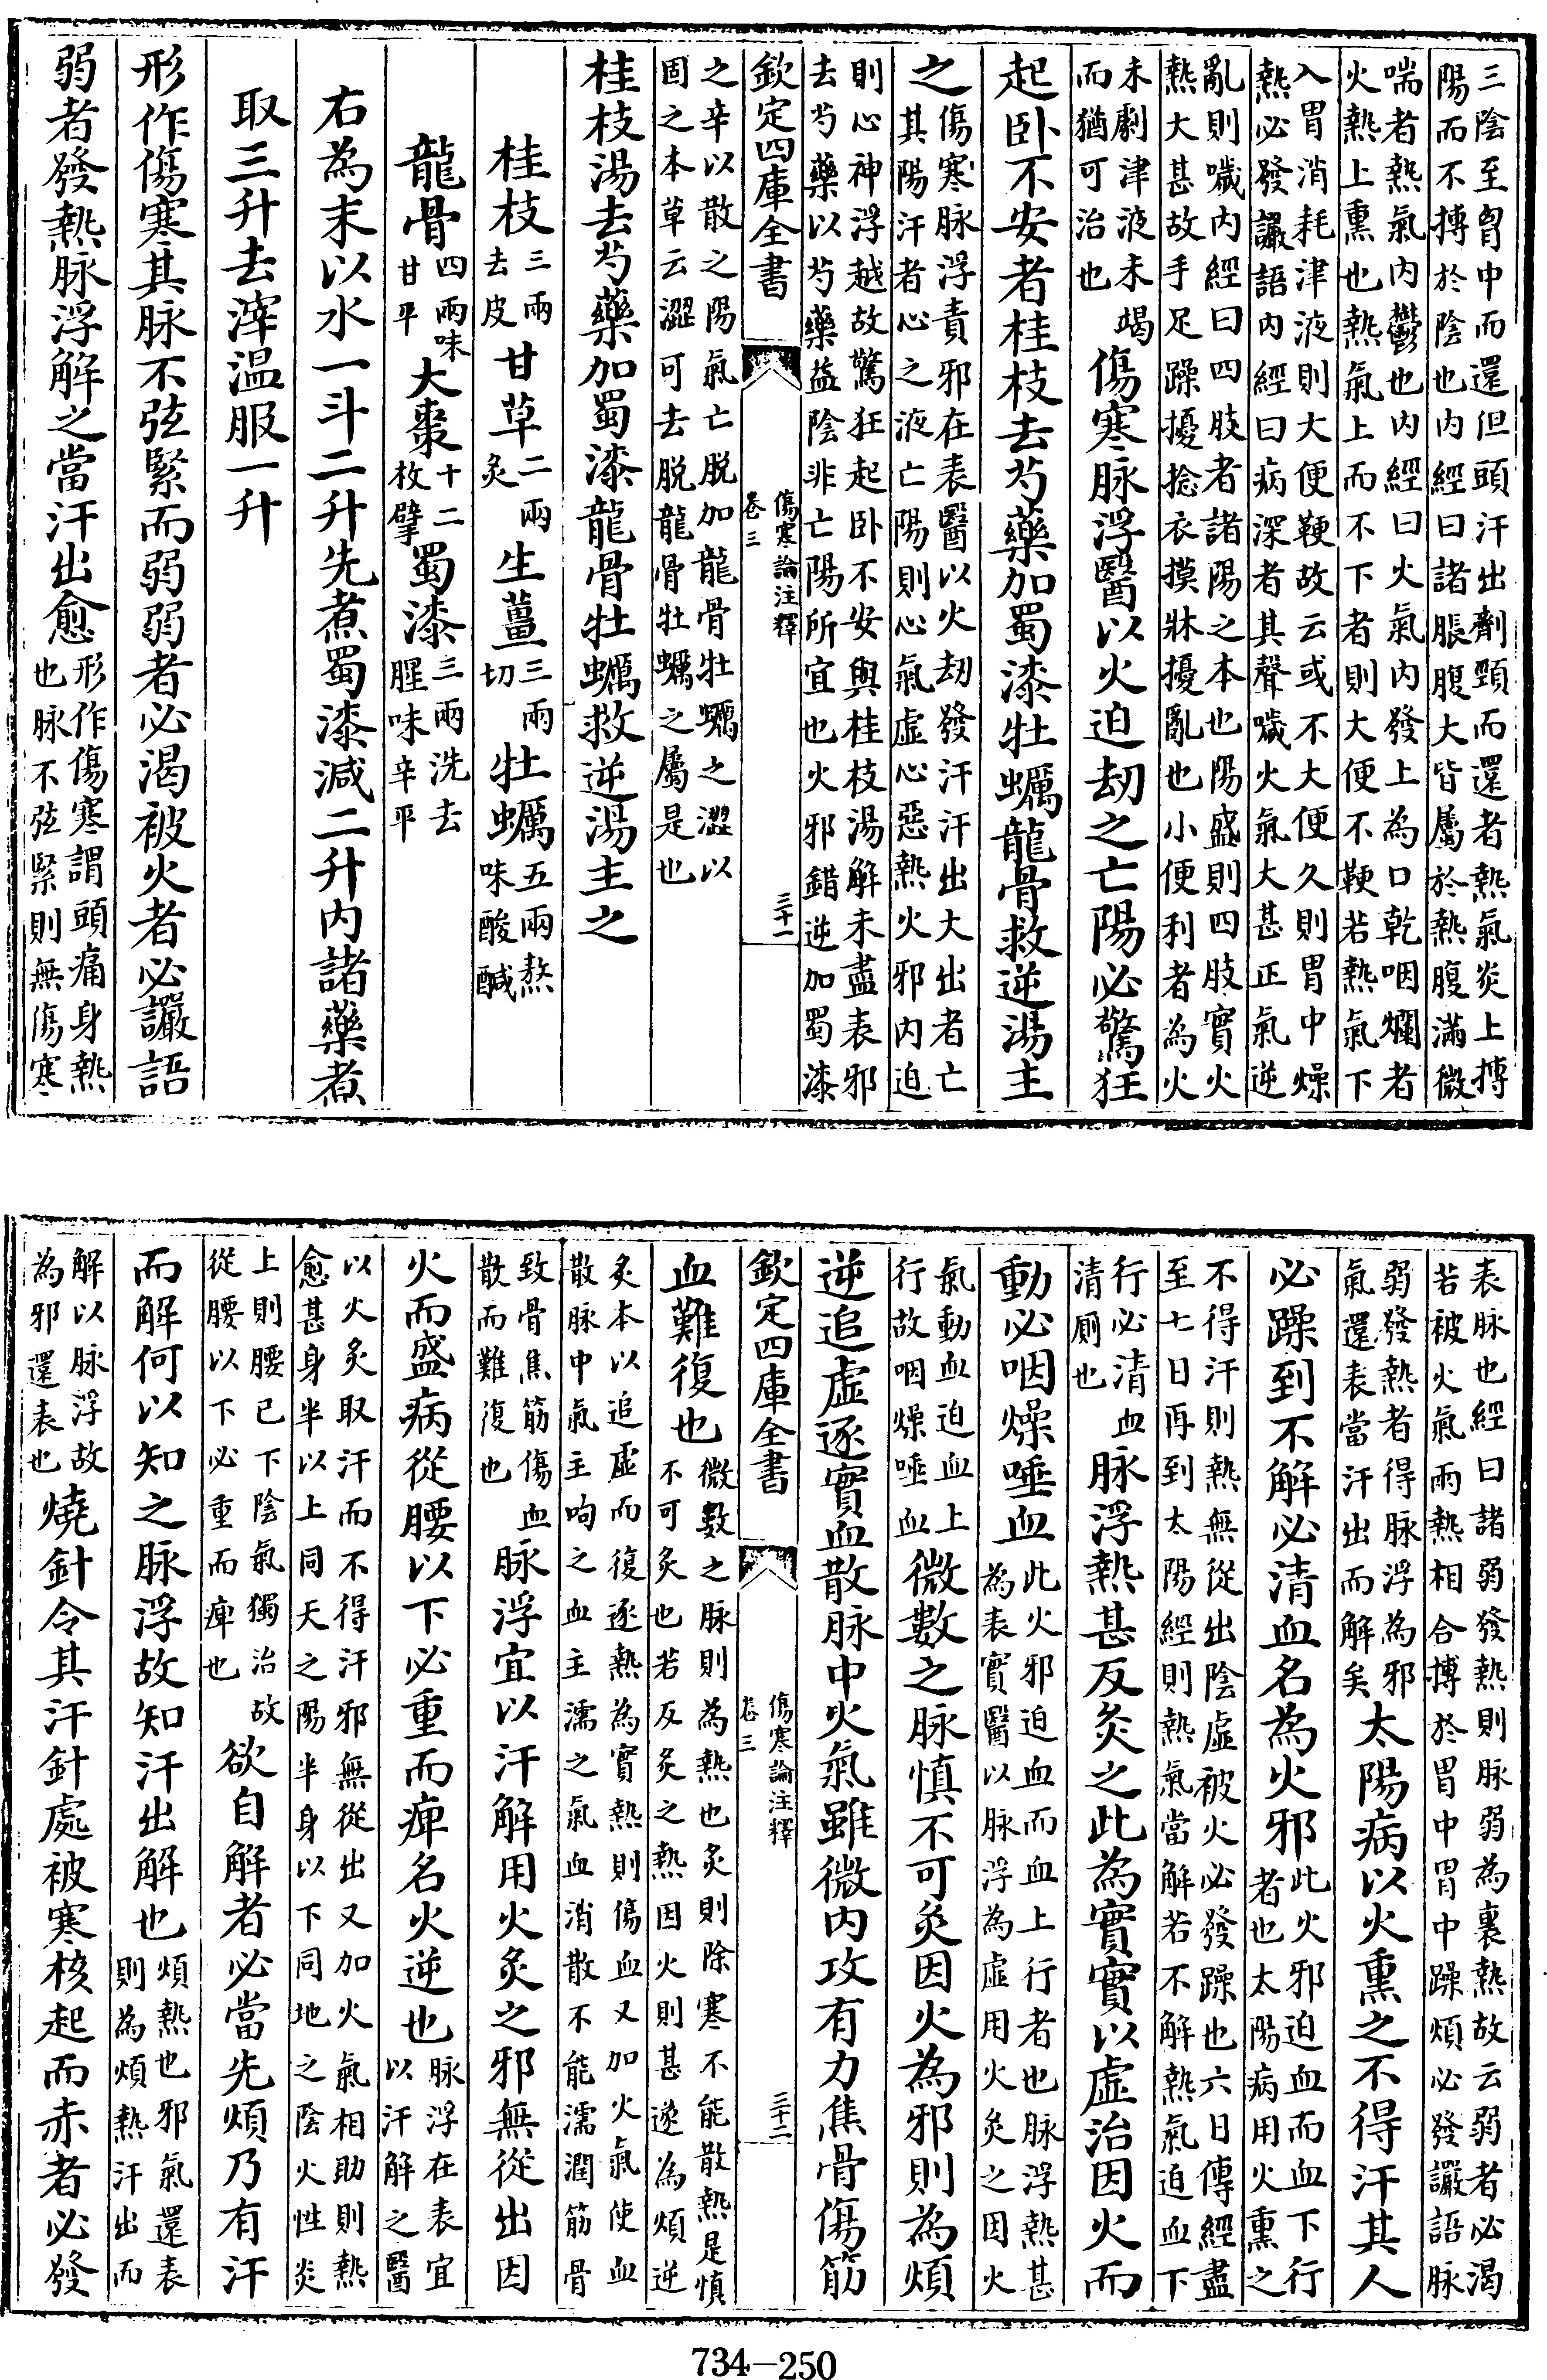 三陰至胷中而還但頭汗出劑頸而還者熱氣炎上搏
陽而不搏於陰也内經曰諸脹腹大皆屬於熱腹滿微
喘者熱氣内鬱也内經曰火氣内發上為口乾咽爛者
火熱上熏也熱氣上而不下者則大便不鞕若熱氣下
入胃消耗津液則大便鞕故云或不大便久則胃中燥
熱必發讝語内經曰病深者其聲噦火氣大甚正氣逆
亂則噦内經曰四肢者諸陽之本也陽盛則四肢實火
熱大甚故手足躁擾捻衣摸牀擾亂也小便利者為火
未劇津液未竭
而猶可治也
傷寒脉浮醫以火迫刼之亡陽必驚狂
起卧不安者桂枝去芍藥加蜀漆牡蠣龍骨救逆湯主
之
傷寒脉浮責邪在表醫以火刼發汗汗出大出者亡
其陽汗者心之液亡陽則心氣虛心惡熱火邪内迫
則心神浮越故驚狂起卧不安與桂枝湯解未盡表邪
去芍藥以芍藥益陰非亡陽所宜也火邪錯逆加蜀漆
欽定四庫全書
傷寒論注釋
卷三
三十一
之辛以散之陽氣亡脱加龍骨牡蠣之澀以
固之本草云澀可去脱龍骨牡蠣之屬是也
桂枝湯去芍藥加蜀漆龍骨牡蠣救逆湯主之
桂枝
三兩
去皮
甘草
二兩
炙
生薑
三兩
切
牡蠣
五兩熬
味酸醎
龍骨
四兩味
甘平
大棗
十二
枚擘
蜀漆
三兩洗去
腥味辛平
右為末以水一斗二升先煮蜀漆減二升内諸藥煮
取三升去滓温服一升
形作傷寒其脉不弦緊而弱弱者必渴被火者必讝語
弱者發熱脉浮解之當汗出愈
形作傷寒謂頭痛身熱
也脉不弦緊則無傷寒
表脉也經曰諸弱發熱則脉弱為裏熱故云弱者必渴
若被火氣兩熱相合搏於胃中胃中躁煩必發讝語脉
弱發熱者得脉浮為邪
氣還表當汗出而解矣
太陽病以火熏之不得汗其人
必躁到不解必清血名為火邪
此火邪迫血而血下行
者也太陽病用火熏之
不得汗則熱無從出陰虛被火必發躁也六日傳經盡
至七日再到太陽經則熱氣當解若不解熱氣迫血下
行必清血
清厠也
脉浮熱甚反灸之此為實實以虛治因火而
動必咽燥唾血
此火邪迫血而血上行者也脉浮熱甚
為表實醫以脉浮為虛用火灸之因火
氣動血迫血上
行故咽燥唾血
微數之脉慎不可灸因火為邪則為煩
逆追虛逐實血散脉中火氣雖微内攻有力焦骨傷筋
欽定四庫全書
傷寒論注釋
卷三
三十二
血難復也
微數之脉則為熱也灸則除寒不能散熱是慎
不可灸也若反灸之熱因火則甚遂為煩逆
灸本以追虛而復逐熱為實熱則傷血又加火氣使血
散脉中氣主呴之血主濡之氣血消散不能濡潤筋骨
致骨焦筋傷血
散而難復也
脉浮宜以汗解用火灸之邪無從出因
火而盛病從腰以下必重而痺名火逆也
脉浮在表宜
以汗解之醫
以火灸取汗而不得汗邪無從出又加火氣相助則熱
愈甚身半以上同天之陽半身以下同地之陰火性炎
上則腰已下陰氣獨治故
從腰以下必重而痺也
欲自解者必當先煩乃有汗
而解何以知之脉浮故知汗出解也
煩熱也邪氣還表
則為煩熱汗出而
解以脉浮故
為邪還表也
燒針令其汗針處被寒核起而赤者必發
734-250